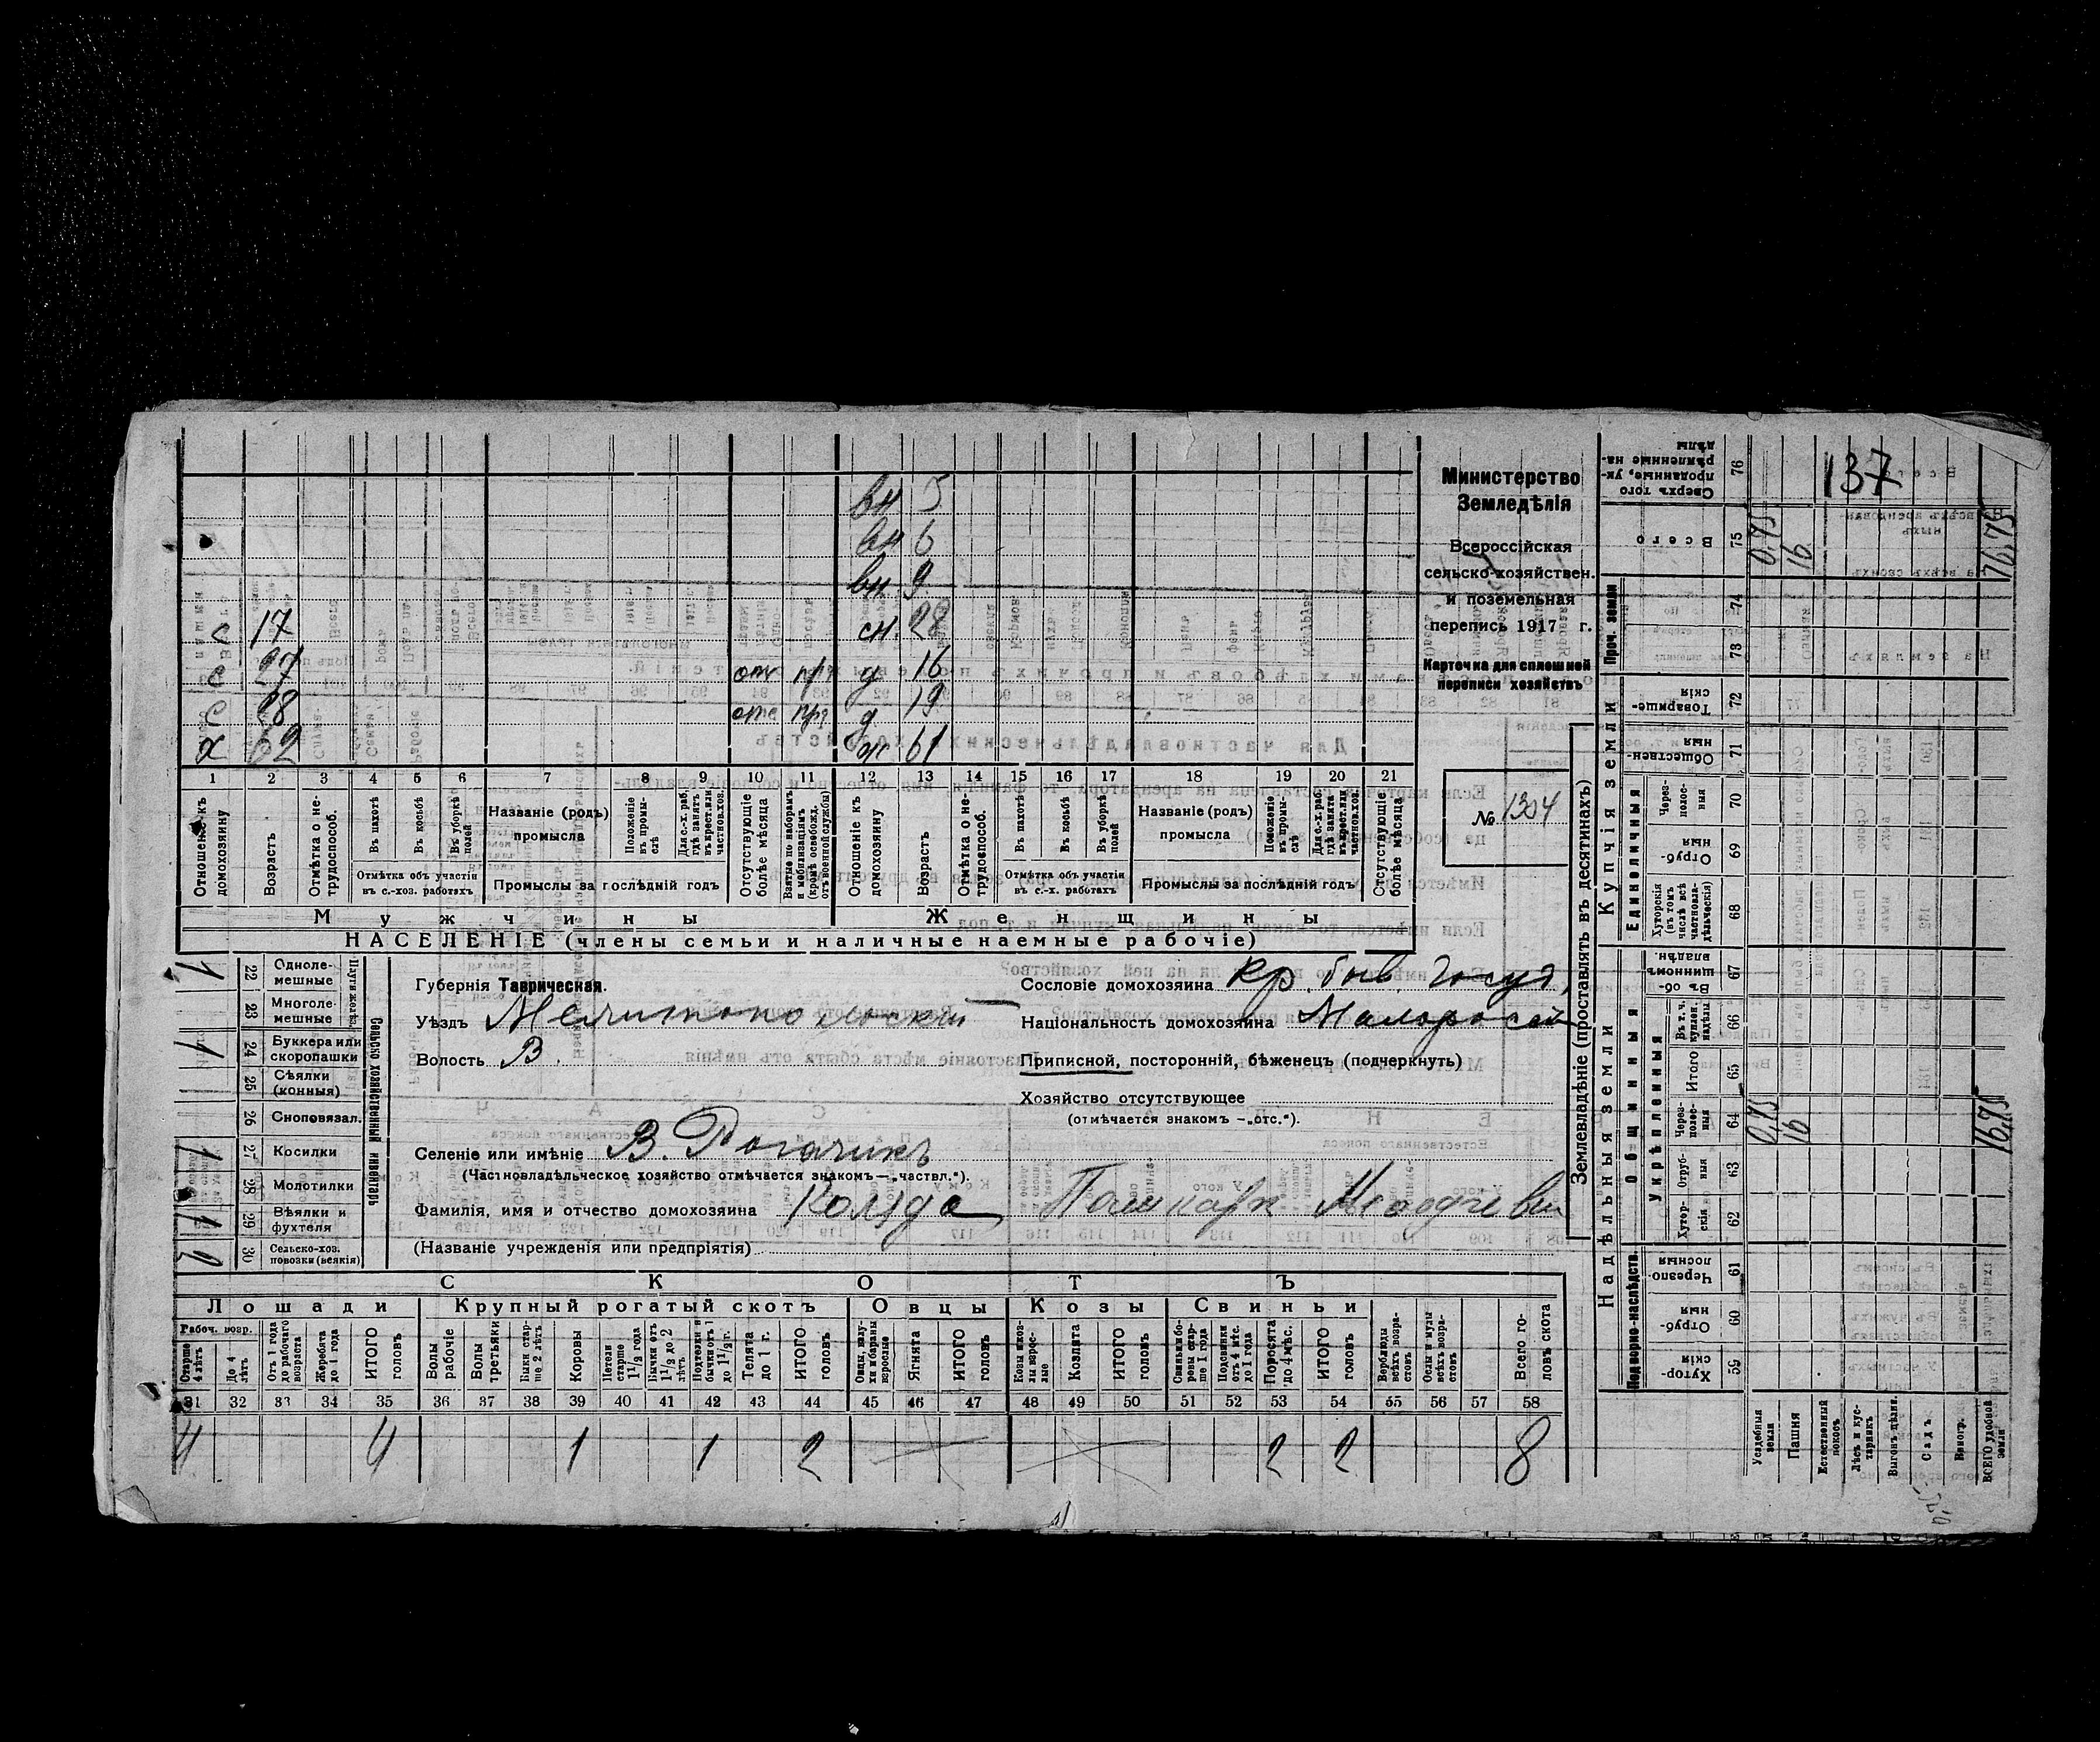 137
Министерство
Земледѣлія
Всероссійская
сельско-хозяйствен.
и поземельная
перепись 1917 г.
Карточка для сплошной
переписи хозяйствъ
№ 1304
вн 5
вн 6
вн 9
с 17 сн. 28
с 27 отс пр д 16
с 28 отс пр д 19
х 62 ж 61
1 2 3 4 5 6 7 8 9 10 11 12 13 14 15 16 17 18 19 20 21
Отношеніе къ домохозяину
Возрастъ
Отмѣтка о не-трудоспособ.
Въ пахотѣ
Въ косьбѣ
Въ уборкѣ полей
Отмѣтка объ участіи въ с.-хоз. работахъ
Названіе (родъ) промысла
Положеніе въ промы-слѣ
Для с.-х. раб. гдѣ занятъ въ крест. или частнов. хоз.
Промыслы за послѣдній годъ
Отсутствующіе болѣе мѣсяца
Взятые по наборамъ и мобилизаціямъ (кромѣ освобожд. отъ военной службы)
Отношеніе къ домохозяину
Возрастъ
Отмѣтка о не-трудоспособ.
Въ пахотѣ
Въ косьбѣ
Въ уборкѣ полей
Отмѣтка объ участіи въ с.-х. работахъ
Названіе (родъ) промысла
Положеніе въ промы-слѣ
Для с.-х. раб. гдѣ занята въ крест. или частнов. хоз.
Промыслы за послѣдній годъ
Отсутствующіе болѣе мѣсяца
Мужчины Женщины
НАСЕЛЕНІЕ (члены семьи и наличные наемные рабочіе)
Сельско хозяйственный инвентарь
Плуги желѣз.
22 Одноле-мешные 1
23 Многоле-мешные
24 Буккера или скоропашки 1
25 Сѣялки (конныя)
26 Сноповязал.
27 Косилки 1
28 Молотилки
29 Вѣялки и фухтеля 1
30 Сельско-хоз. повозки (всякія) 2
Губернія Таврическая.
Уѣздъ Мелитопольскій
Волость В.
Селеніе или имѣніе В. Рогачикъ
(Частновладѣльческое хозяйство отмѣчается знакомъ—„частвл.“).
Фамилія, имя и отчество домохозяина
(Названіе учрежденія или предпріятія)
Сословіе домохозяина кр. быв. госуд.
Національность домохозяина Малоросъ
Приписной, посторонній, бѣженец (подчеркнуть)
Хозяйство отсутствующее
(отмѣчается знакомъ —„отс.“).
СКОТЪ
Лошади Крупный рогатый скотъ Овцы Козы Свиньи
Рабоч. возр.
Старше 4 лѣтъ
До 4 лѣтъ
Отъ 1 года до рабочаго возраста
Жеребята до 1 года
ИТОГО головъ
Волы рабочіе
Волы третьяки
Быки стар-ше 2 лѣтъ
Коровы
Нетели старше 1 1/2 года
Бычки отъ 1 1/2 до 2 лѣтъ
Подтелки и бычки отъ 1 до 1 1/2 г.
Телята до 1 г.
ИТОГО головъ
Овцы, валу-хи и бараны взрослые
Ягнята
ИТОГО головъ
Козы и коз-лы взрос-лые
Козлята
ИТОГО головъ
Свиньи и бо-ровы стар-ше 1 года
Подсвинки отъ 4 мѣс. до 1 года
Поросята до 4 мѣс.
ИТОГО головъ
Верблюды всѣхъ возра-стовъ
Ослы и мулы всѣхъ возра-стовъ
Всего го-ловъ скота
31 32 33 34 35 36 37 38 39 40 41 42 43 44 45 46 47 48 49 50 51 52 53 54 55 56 57 58
4 4 1 1 2 2 2 8
Землевладѣніе (проставлять въ десятинахъ)
Надѣльныя земли
Купчія земли
Проч. земли
Подворно-наслѣдств.
Общинныя
Укрѣпленныя
Единоличныя
59 Хутор-скія
60 Отруб-ныя
61 Черезпо-лосныя
62 Хутор-скія
63 Отруб-ныя
64 Через-полос-ныя 0,75 16 16,75
65 Итого
66 Въ т. ч. куплен. надѣлы
67 Въ об-щинномъ владѣн.
68 Хуторскія (въ томъ числѣ всѣ частновла-дѣльческія)
69 Отруб-ныя
70 Через-полос-ныя
71 Обществен-ныя
72 Товарище-скія
73
74
75 Всего 0,75 16 16,75
76 Сверхъ того проданные, ук-рѣпленные на-дѣлы
Усадебная земля
Пашня
Естественный покосъ
Лѣсъ и кус-тарникъ
Выгонъ цѣлин.
Садъ
Виногр.
ВСЕГО удобной земли